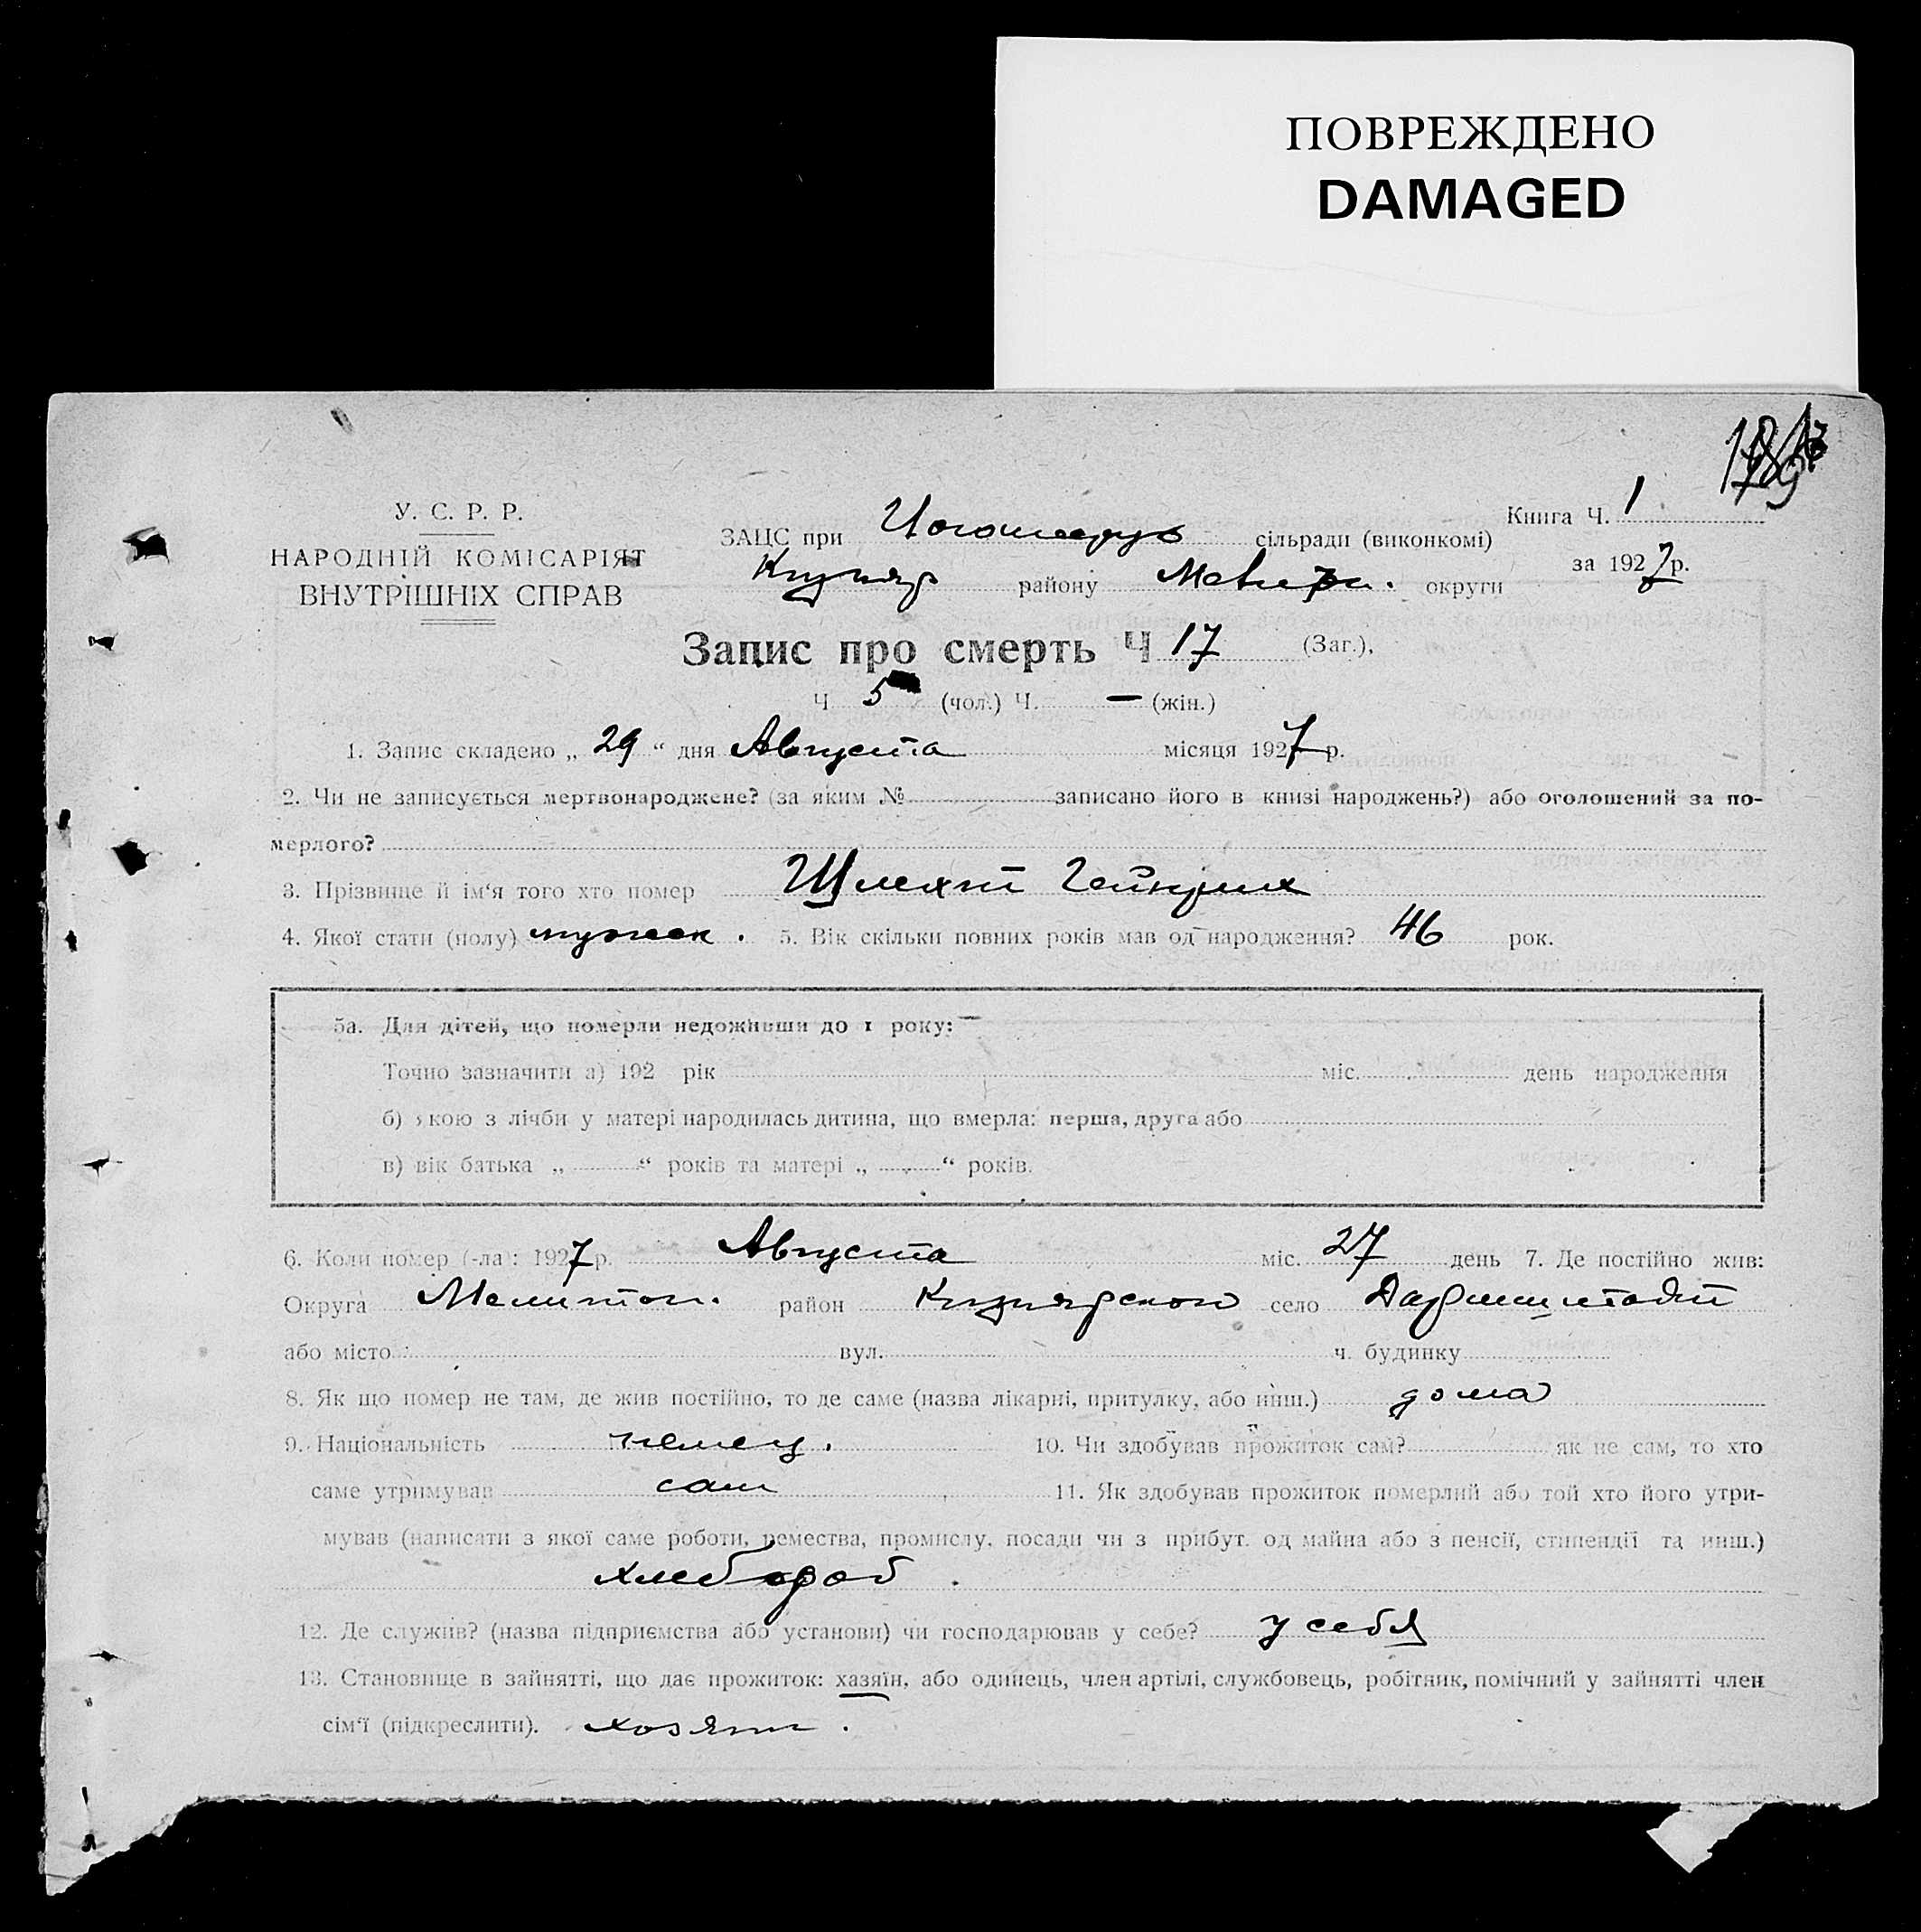 ПОВРЕЖДЕНО
DAMAGED
У. С. Р. Р.
НАРОДНІЙ КОМІСАРІЯТ
ВНУТРІШНІХ СПРАВ
Книга Ч. 1
ЗАЦС при сільради (виконкомі)
за 1927 р.
Кизияр району округи
Запис про смерть Ч 17 (Заг.),
Ч 5 (чол.) Ч. — (жін.)
1. Запис складено „ 29 “ дня Августа місяця 1927 р.
2. Чи не записується мертвонароджене? (за яким № записано його в книзі народжень?) або оголошений за по-
мерлого?
3. Прізвище й ім‘я того хто помер Шлехт Гейнрих
4. Якої стати (полу) мужск. 5. Вік скільки повних років мав од народження? 46 рок.
5а. Для дітей, що померли недоживши до 1 року: —
Точно зазначити а) 192 рік міс. день народження
б) якою з лічби у матері народилась дитина, що вмерла: перша, друга або
в) вік батька „ “ років та матері „ “ років.
6. Коли помер (-ла): 1927 р. Августа міс. 27 день 7. Де постійно жив:
Округа Мелитоп. район Кизиярской село Дармштадт
або місто вул. ч. будинку
8. Як що помер не там, де жив постійно, то де саме (назва лікарні, притулку, або инш.) дома
9. Національність немец. 10. Чи здобував прожиток сам? " як не сам, то хто
саме утримував сам 11. Як здобував прожиток померлий або той хто його утри-
мував (написати з якої саме роботи, ремества, промислу, посади чи з прибут. од майна або з пенсії, стипендії та инш.)
хлебороб.
12. Де служив? (назва підприємства або установи) чи господарював у себе? у себя
13. Становище в зайнятті, що дає прожиток: хазяїн, або одинець, член артілі, службовець, робітник, помічний у зайнятті член
сім‘ї (підкреслити). хозяин.